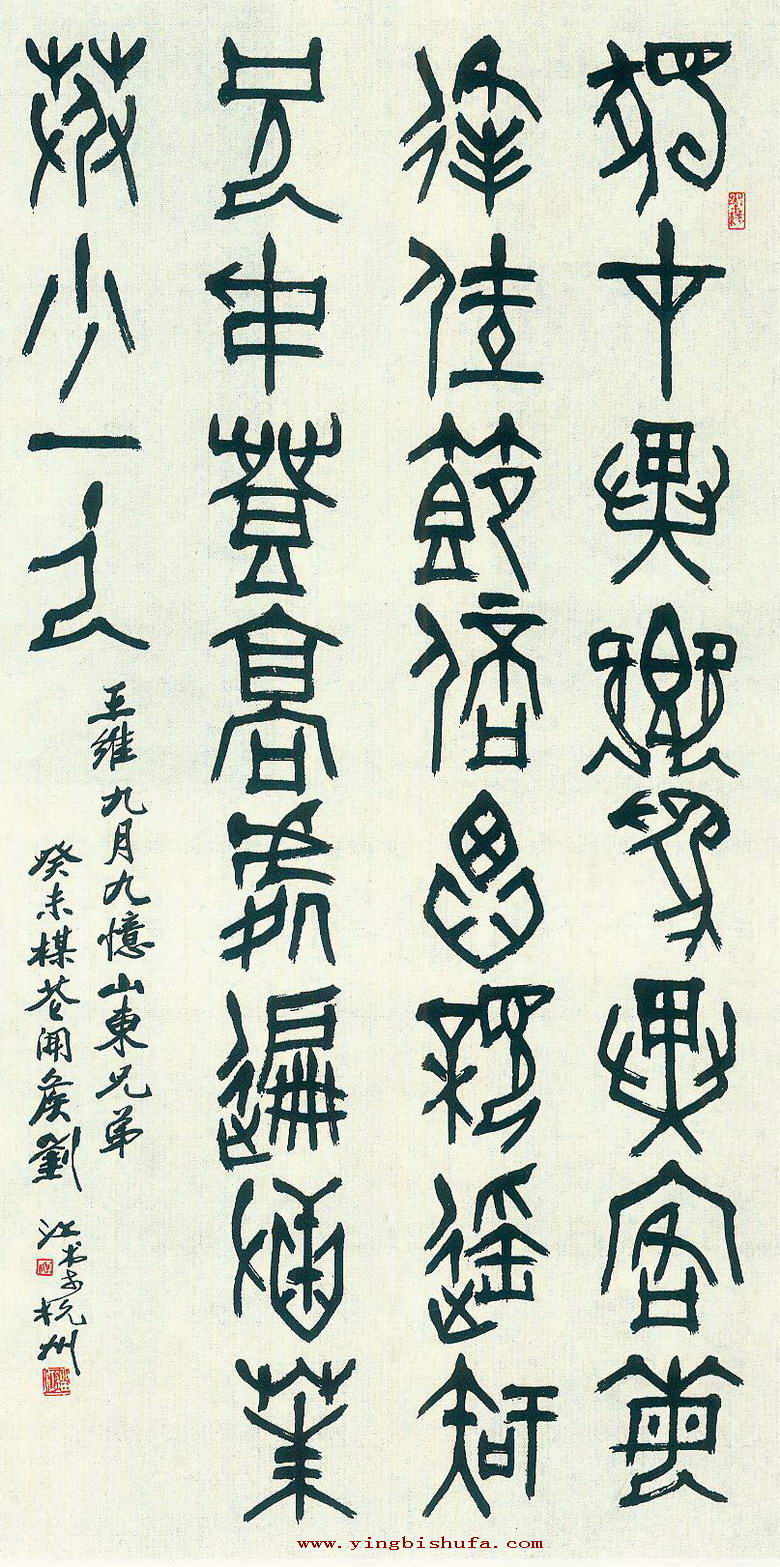 獨在異鄉為異客每
逢佳節倍思親遙知
兄弟登高處遍插茱
萸少一人
王維九月九憶山東兄弟
癸未楳花開候劉江書于杭州
www.yingbishufa.com